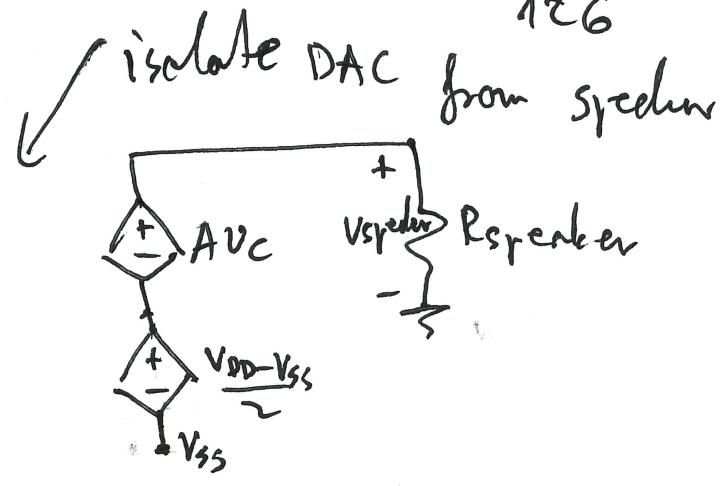 126
isolate DAC from speaker
+
+
-
AVc
Vspeaker
Rspeaker
-
+
-
VDD-VSS
2
VSS